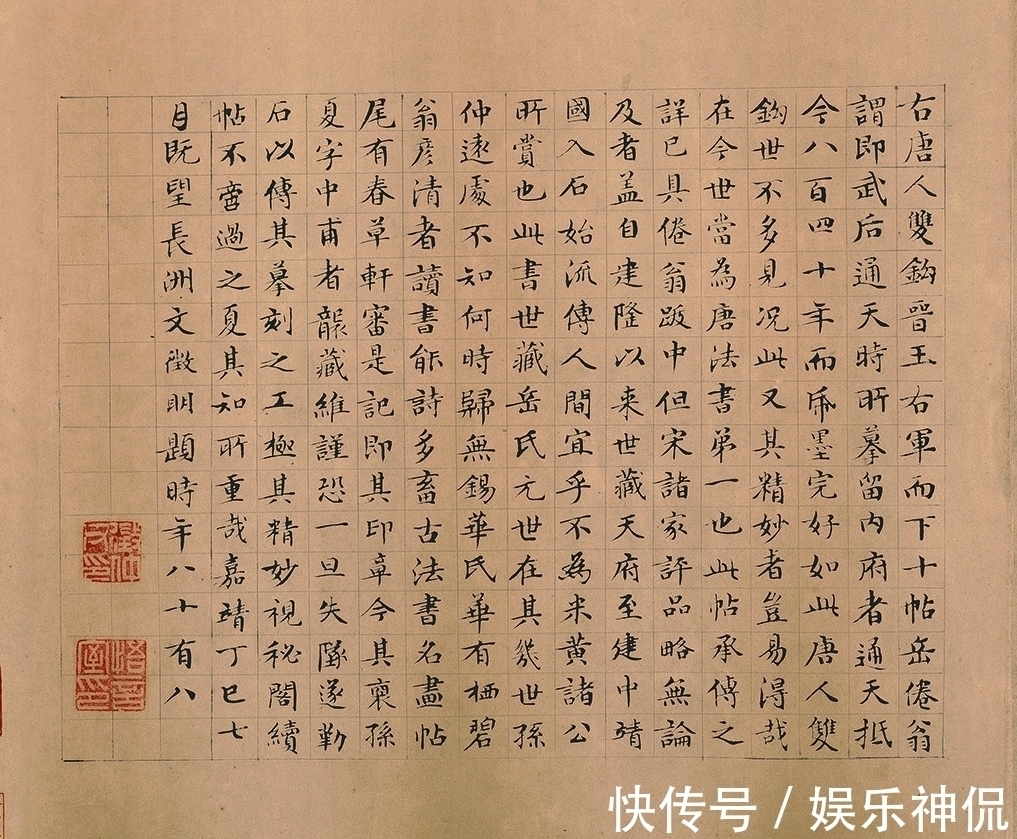 右唐人雙鈎晉王右軍而下十帖岳倦翁
謂即武后通天時所摹留内府者通天抵
今八百四十年而帋墨完好如此唐人雙
鈎世不多見况此又其精妙者豈易得哉
在今世當為唐法書弟一也此帖承傳之
詳已具倦翁跋中但宋諸家評品略無論
及者盖自建隆以来世藏天府至建中靖
國入石始流傳人間宜乎不為米黄諸公
所賞也此書世藏岳氏元世在其幾世孫
仲遠處不知何時歸無錫華氏華有栖碧
翁彦清者讀書能詩多畜古法書名畫帖
尾有春草軒審是記即其印章今其裔孫
夏字中甫者襲藏維謹恐一旦失墜遂勤
石以傳其摹刻之工極其精妙視秘閣續
帖不啻過之夏其知所重哉嘉靖丁巳七
月既望長洲文徵明題時年八十有八
快传号 / 娱乐神侃